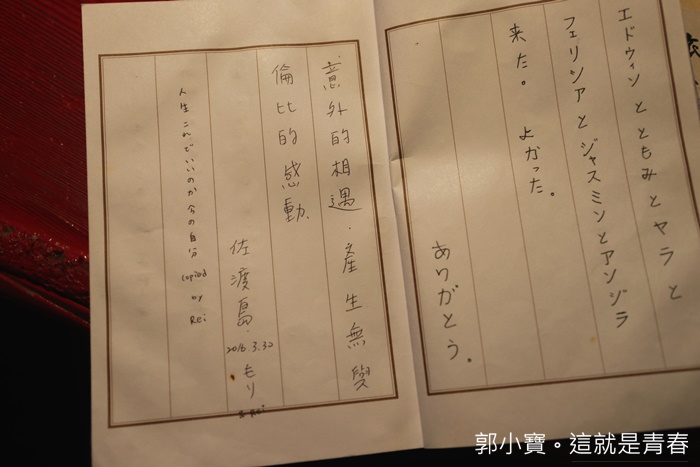 エドウィンとともみとヤラと
フェリシアとジャスミンとアンジラ
来た。 よかった。
ありがとう。
意外的相遇.產生無與
倫比的感動.
佐渡島. もり
Rei
人生これでいいのか今の自分 copied by Rei
郭小寶。這就是青春